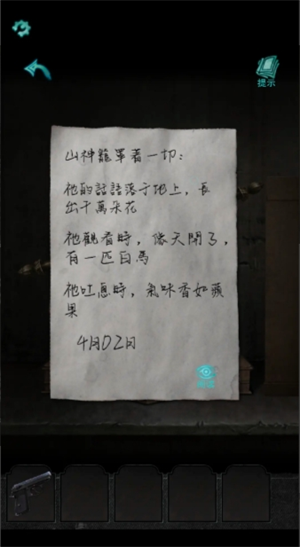 提示
山神籠罩著一切:
祂的話語落于地上,長
出千萬朵花
祂觀看時,像天開了,
有一匹白馬
祂吐息時,氣味香如蘋
果
4月02日